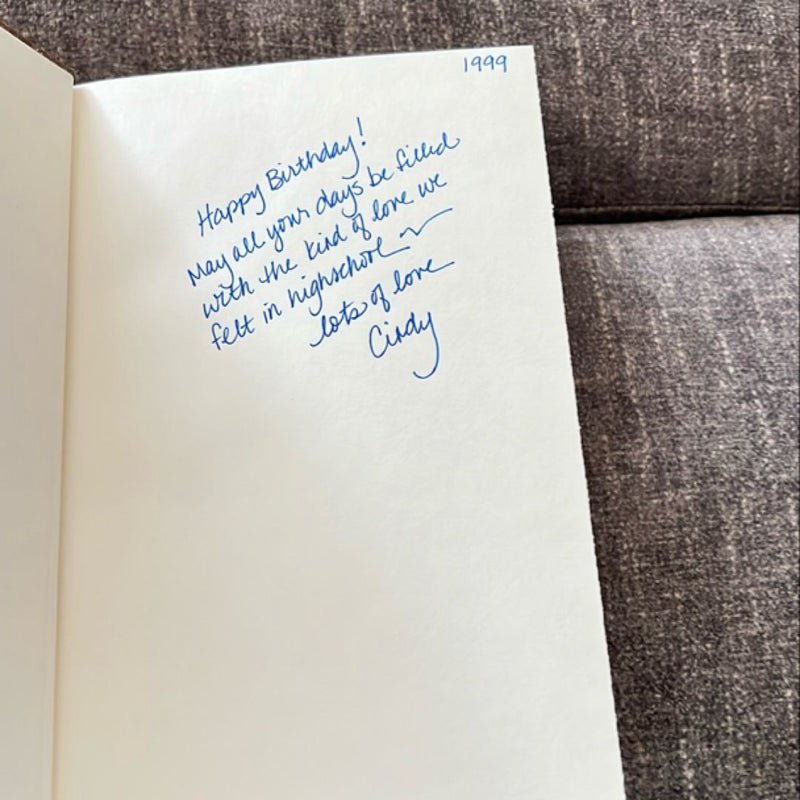 1999
Happy Birthday!
May all your days be filled
with the kind of love we
felt in highschool ~
lots of love
Cindy